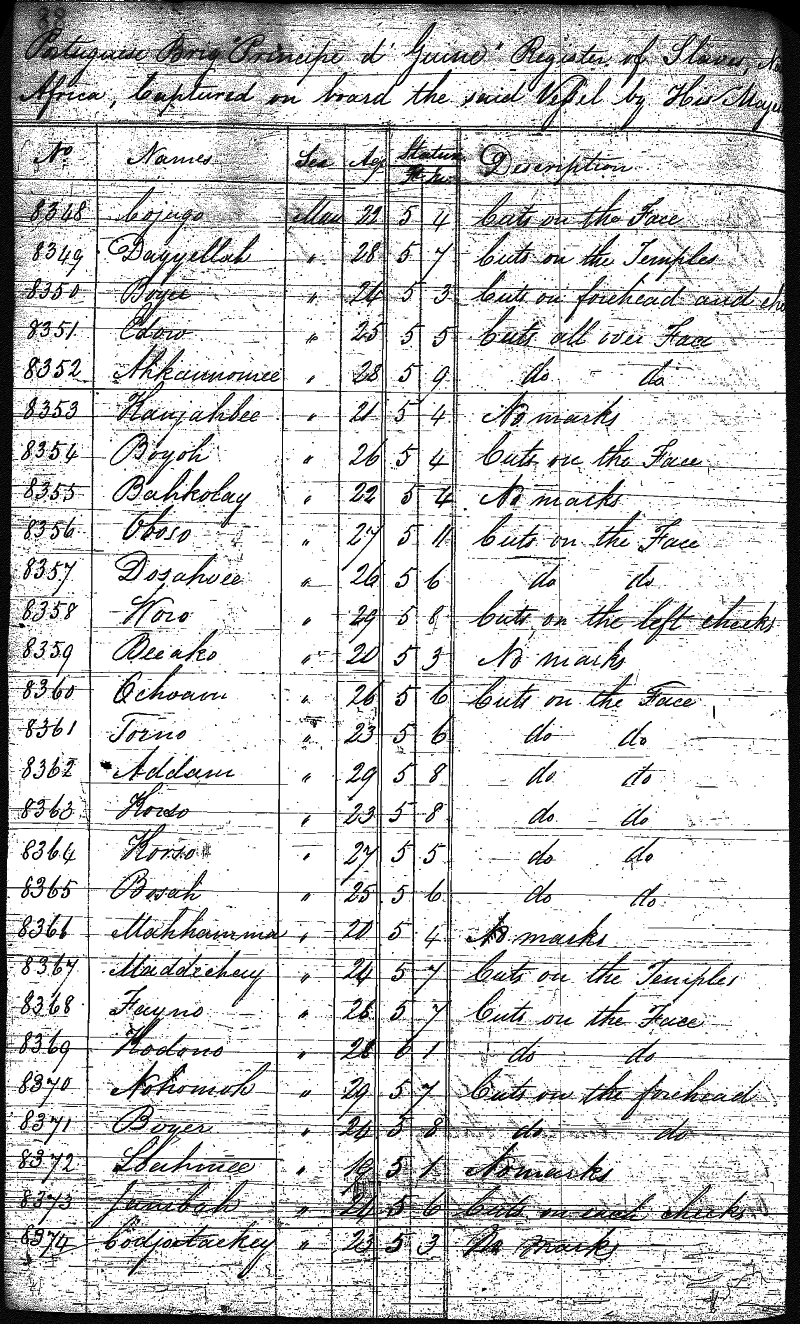 38
Portuguese Brig "Principe d' Guine" Register of Slaves,
Africa, Captured on board the said Vessel by His
No Names Sex Age Stature Description
Ft In
8348 Cojugo Man 22 5 4 Cuts on the Face
8349 Dayyellah " 28 5 7 Cuts on the Temples
8350 Boyee " 26 5 3 Cuts on forehead and
8351 Edow " 25 5 5 Cuts all over Face
8352 Ahkannomee " 28 5 9 do do
8353 Kanjahbee " 21 5 4 No marks
8354 Boyoh " 26 5 4 Cuts on the Face
8355 Bahkolay " 22 5 4 No marks
8356 Oboso " 27 5 11 Cuts on the Face
8357 Dosahvee " 26 5 6 do do
8358 Woro " 29 5 8 Cuts on the left cheeks
8359 Beeako " 20 5 3 No marks
8360 Ochoavu " 26 5 6 Cuts on the Face
8361 Torno " 23 5 6 do do
8362 Addam " 29 5 8 do do
8363 Korso " 23 5 8 do do
8364 Korso " 27 5 5 do do
8365 Bosah " 25 5 6 do do
8366 Mahhamma " 20 5 4 No marks
8367 Maddzehay " 24 5 7 Cuts on the Temples
8368 Fayno " 26 5 7 Cuts on the Face
8369 Hodono " 28 6 1 do do
8370 Nohomoh " 29 5 7 Cuts on the forehead
8371 Boyer " 24 5 8 do do
8372 " 5 1 No marks
8373 Janibah " 24 5 6 Cuts on each cheeks
8374 Codjotachey " 23 5 3 No marks